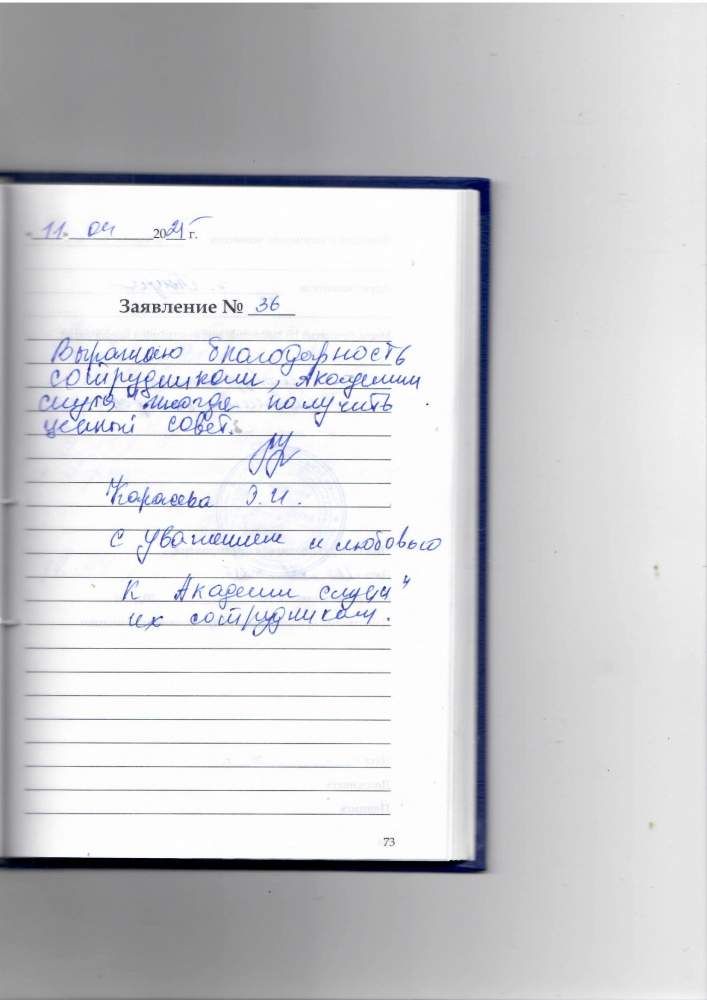 "11" 04 2021 г.
Заявление № 36
Выражаю благодарность
сотрудникам, Академии
слуха" всегда получить
ценный совет.
Караева Э.И.
с уважением и любовью
к Академии слуха"
их сотрудникам.
73